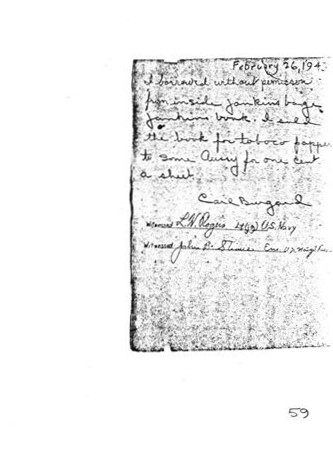 February 26, 194
I borrowed without permission
from inside Jankins bag
Jankins book. I sold
the book for tobaco papper
to some Aussy for one cent
a sheet
Carl Burgard
Witnessed L N Rogers Lt (jg) U.S. Navy
Witnessed John P. Ens.
59